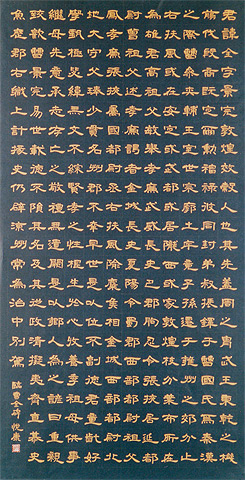 君諱全字景完敦煌效穀人也其先蓋周之胄武王秉乾之機
翦伐殷商既定爾勳福祿攸同封弟叔振鐸于曹國因氏焉秦漢
之際曹參夾輔王室世宗廓土斥竟子孫遷于雍州之郊分止
右扶風或在安定或處武都或居隴西或家敦煌枝分葉布所在
為雄君高祖父敏舉孝廉武威長史巴郡朐忍令張掖居延都
尉曾祖父述孝廉謁者金城長史夏陽令蜀郡西部都尉祖父
鳳孝廉張掖屬國都尉丞右扶風隃麋侯相金城西部都尉北
地大守父琫少貫名州郡不幸早世是以位不副德君童齔好
學甄極毖緯無文不綜賢孝之性根生於心收養季祖母供事
繼母先意承志存亡之敬禮無遺闕是以鄉人為之諺曰重親
致歡曹景完易世載德不隕其名及其從政清擬夷齊直慕史
魚歷郡右職上計掾史仍辟涼州常為治中別駕
臨曹全碑